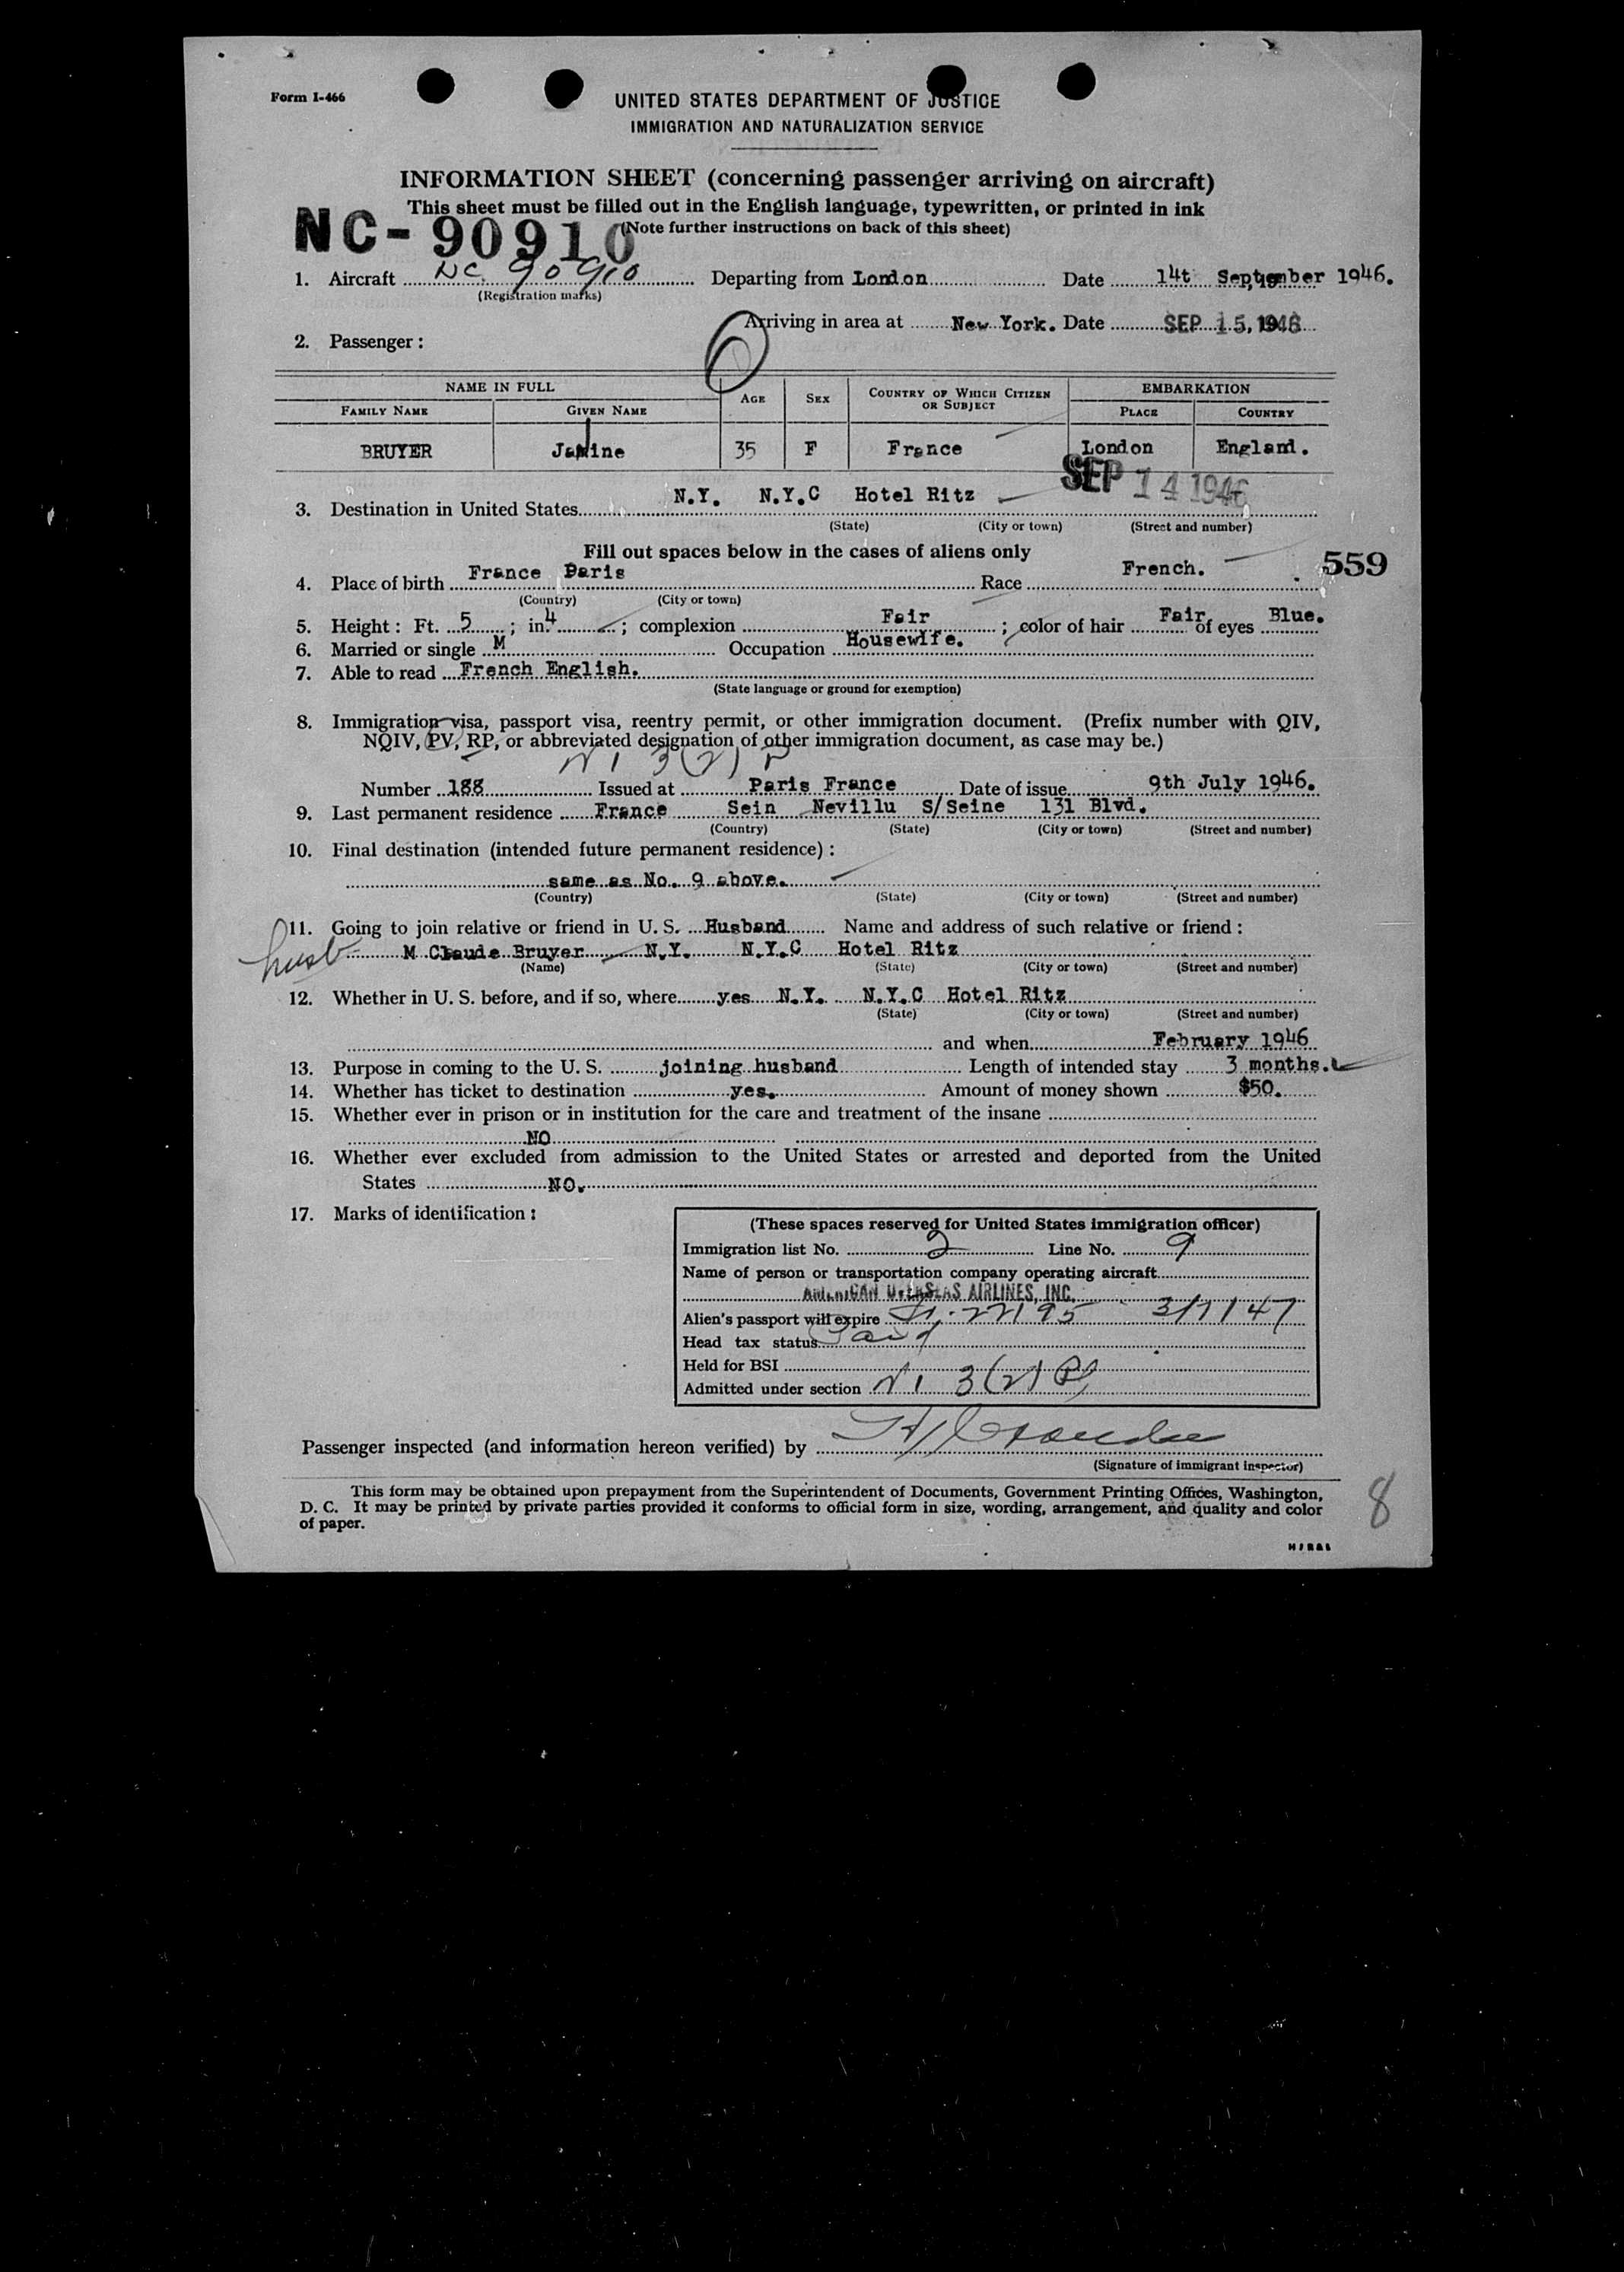 Form I-466
UNITED STATES DEPARTMENT OF JUSTICE
IMMIGRATION AND NATURALIZATION SERVICE
INFORMATION SHEET (concerning passenger arriving on aircraft)
This sheet must be filled out in the English language, typewritten, or printed in ink
NC-90910 (Note further instructions on back of this sheet)
1. Aircraft NC 90910 Departing from London Date 14t September 1946.
(Registration marks)
Arriving in area at New York. Date SEP 15, 1946
2. Passenger: 6
NAME IN FULL AGE SEX COUNTRY OF WHICH CITIZEN OR SUBJECT EMBARKATION
FAMILY NAME GIVEN NAME PLACE COUNTRY
BRUYER Janine 35 F France London England.
SEP 14 1946
3. Destination in United States N.Y. N.Y.C Hotel Ritz
(State) (City or town) (Street and number)
Fill out spaces below in the cases of aliens only
559
4. Place of birth France Paris Race French.
(Country) (City or town)
5. Height: Ft. 5; in. 4; complexion Fair; color of hair Fair of eyes Blue.
6. Married or single M Occupation Housewife.
7. Able to read French English.
(State language or ground for exemption)
8. Immigration visa, passport visa, reentry permit, or other immigration document. (Prefix number with QIV,
NQIV, PV, RP, or abbreviated designation of other immigration document, as case may be.)
3(2)
Number 188 Issued at Paris France Date of issue 9th July 1946.
9. Last permanent residence France Sein Nevillu S/Seine 131 Blvd.
(Country) (State) (City or town) (Street and number)
10. Final destination (intended future permanent residence):
same as No. 9 above.
(Country) (State) (City or town) (Street and number)
11. Going to join relative or friend in U. S. Husband Name and address of such relative or friend:
husb M Claude Bruyer N.Y. N.Y.C Hotel Ritz
(Name) (State) (City or town) (Street and number)
12. Whether in U. S. before, and if so, where yes N.Y. N.Y.C Hotel Ritz
(State) (City or town) (Street and number)
and when February 1946
13. Purpose in coming to the U. S. joining husband Length of intended stay 3 months.
14. Whether has ticket to destination yes. Amount of money shown $50.
15. Whether ever in prison or in institution for the care and treatment of the insane
NO
16. Whether ever excluded from admission to the United States or arrested and deported from the United
States NO.
17. Marks of identification:
(These spaces reserved for United States immigration officer)
Immigration list No. 2 Line No. 9
Name of person or transportation company operating aircraft
AMERICAN OVERSEAS AIRLINES, INC.
Alien's passport will expire 22195 3/7/47
Head tax status Paid
Held for BSI
Admitted under section 3(2)
Passenger inspected (and information hereon verified) by
(Signature of immigrant inspector)
This form may be obtained upon prepayment from the Superintendent of Documents, Government Printing Offices, Washington,
D. C. It may be printed by private parties provided it conforms to official form in size, wording, arrangement, and quality and color
of paper.
8